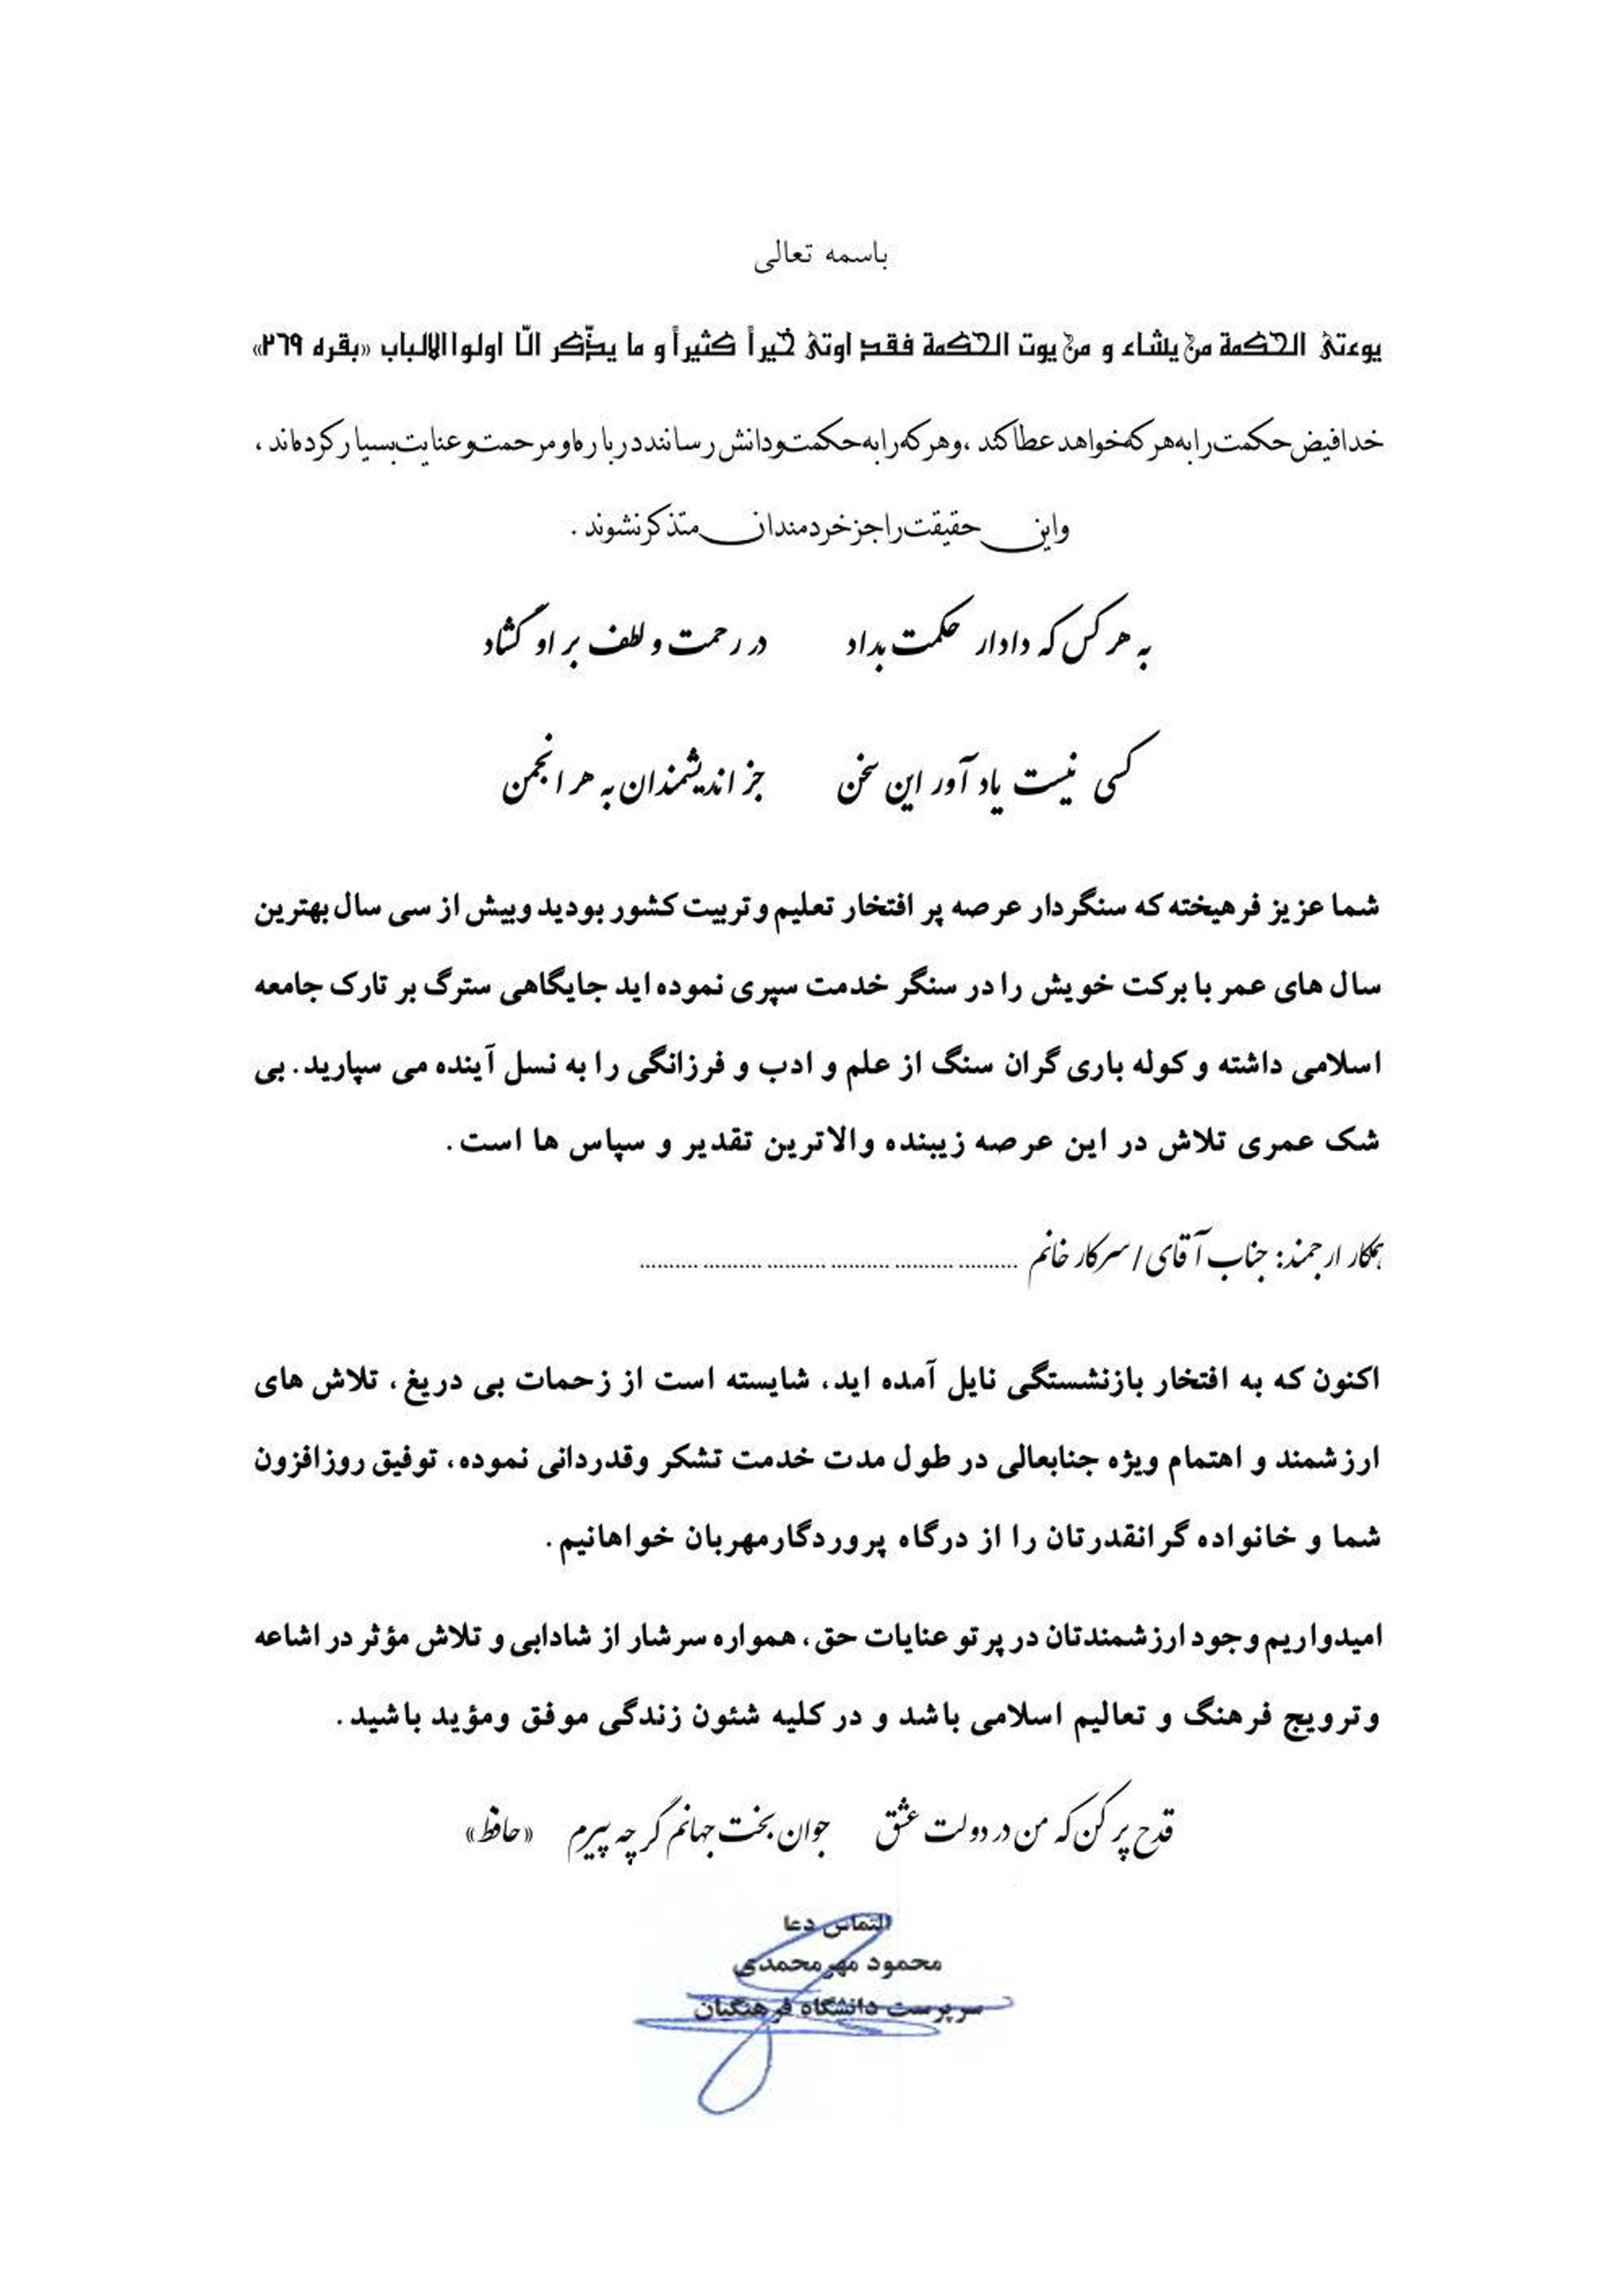 باسمه تعالی
یوءتی الحکمة من یشاء و من یوت الحکمة فقد اوتی خیراً کثیراً و ما یذّکر الّا اولوا الالباب «بقره ۲۶۹»
خدا فیض حکمت را به هر که خواهد عطا کند ، و هر که را به حکمت و دانش رسانند درباره او مرحمت و عنایت بسیار کرده‌اند ،
و این حقیقت را جز خردمندان متذکر نشوند .
به هر کس که دادار حکمت بداد در رحمت و لطف بر او گشاد
کسی نیست یاد آور این سخن جز اندیشمندان به هر انجمن
شما عزیز فرهیخته که سنگردار عرصه پر افتخار تعلیم و تربیت کشور بودید وبیش از سی سال بهترین
سال های عمر با برکت خویش را در سنگر خدمت سپری نموده اید جایگاهی سترگ بر تارک جامعه
اسلامی داشته و کوله باری گران سنگ از علم و ادب و فرزانگی را به نسل آینده می سپارید. بی
شک عمری تلاش در این عرصه زیبنده والاترین تقدیر و سپاس ها است .
همکار ارجمند: جناب آقای / سرکار خانم ......... ......... ......... ......... ......... .........
اکنون که به افتخار بازنشستگی نایل آمده اید، شایسته است از زحمات بی دریغ، تلاش های
ارزشمند و اهتمام ویژه جنابعالی در طول مدت خدمت تشکر وقدردانی نموده، توفیق روزافزون
شما و خانواده گرانقدرتان را از درگاه پروردگارمهربان خواهانیم .
امیدواریم وجود ارزشمندتان در پرتو عنایات حق، همواره سرشار از شادابی و تلاش مؤثر در اشاعه
وترویج فرهنگ و تعالیم اسلامی باشد و در کلیه شئون زندگی موفق ومؤید باشید .
قدح پر کن که من در دولت عشق جوان بخت جهانم گر چه پیرم «حافظ»
التماس دعا
محمود مهرمحمدی
سرپرست دانشگاه فرهنگیان